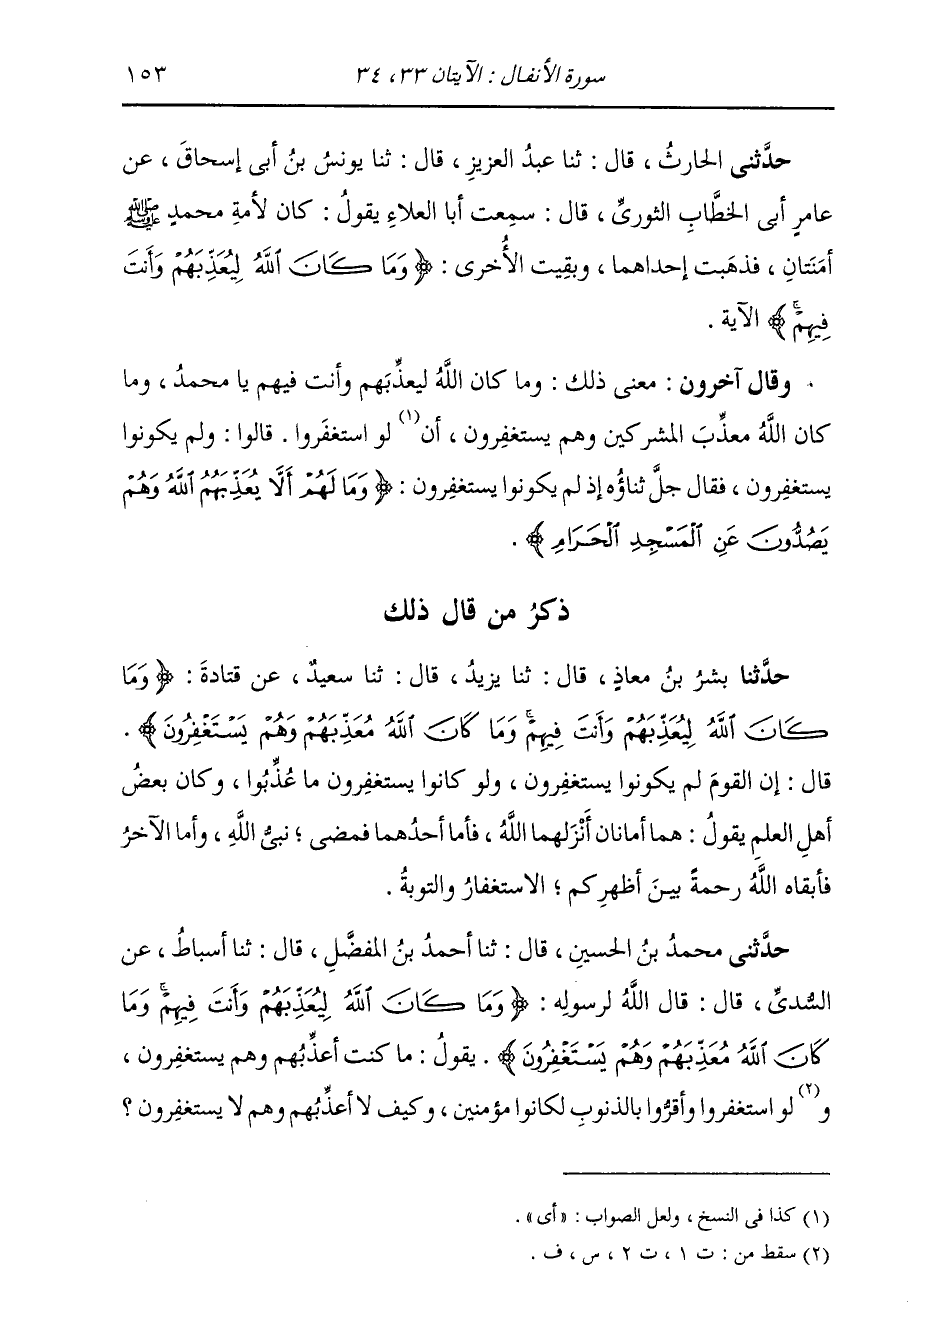 سورة الأنفال : الآيتان ٣٣، ٣٤ ١٥٣
حدَّثنى الحارثُ ، قال : ثنا عبدُ العزيزِ ، قال : ثنا يونسُ بنُ أبى إسحاقَ ، عن
عامرٍ أبى الخطَّابِ الثورىِّ ، قال : سمِعت أبا العلاءِ يقولُ : كان لأمةِ محمدٍ ﷺ
أمَنَتانِ ، فذهَبت إحداهما ، وبقِيت الأُخرى : ﴿ وَمَا كَانَ ٱللَّهُ لِيُعَذِّبَهُمْ وَأَنتَ
فِيهِمْۚ ﴾ الآية .
وقال آخرون : معنى ذلك : وما كان اللَّهُ ليعذِّبَهم وأنت فيهم يا محمدُ ، وما
كان اللَّهُ معذِّبَ المشركين وهم يستغفِرون ، أن(١) لو استغفَروا . قالوا : ولم يكونوا
يستغفِرون ، فقال جلَّ ثناؤُه إذ لم يكونوا يستغفِرون : ﴿ وَمَا لَهُمْ أَلَّا يُعَذِّبَهُمُ ٱللَّهُ وَهُمْ
يَصُدُّونَ عَنِ ٱلْمَسْجِدِ ٱلْحَرَامِ ﴾ .
ذكرُ من قال ذلك
حدَّثنا بشرُ بنُ معاذٍ ، قال : ثنا يزيدُ ، قال : ثنا سعيدٌ ، عن قتادةَ : ﴿ وَمَا
كَانَ ٱللَّهُ لِيُعَذِّبَهُمْ وَأَنتَ فِيهِمْۚ وَمَا كَانَ ٱللَّهُ مُعَذِّبَهُمْ وَهُمْ يَسْتَغْفِرُونَ ﴾ .
قال : إن القومَ لم يكونوا يستغفِرون ، ولو كانوا يستغفِرون ما عُذِّبُوا ، وكان بعضُ
أهلِ العلمِ يقولُ : هما أمانان أَنْزَلهما اللَّهُ ، فأما أحدُهما فمضى ؛ نبىُّ اللَّهِ ، وأما الآخرُ
فأبقاه اللَّهُ رحمةً بينَ أظهرِكم ؛ الاستغفارُ والتوبةُ .
حدَّثنى محمدُ بنُ الحسينِ ، قال : ثنا أحمدُ بنُ المفضَّلِ ، قال : ثنا أسباطُ ، عن
السُّدىِّ ، قال : قال اللَّهُ لرسولِه : ﴿ وَمَا كَانَ ٱللَّهُ لِيُعَذِّبَهُمْ وَأَنتَ فِيهِمْۚ وَمَا
كَانَ ٱللَّهُ مُعَذِّبَهُمْ وَهُمْ يَسْتَغْفِرُونَ ﴾ . يقولُ : ما كنت أعذِّبُهم وهم يستغفِرون ،
و(٢) لو استغفروا وأقرُّوا بالذنوبِ لكانوا مؤمنين ، وكيف لا أعذِّبُهم وهم لا يستغفِرون ؟
(١) كذا فى النسخ ، ولعل الصواب : «أى» .
(٢) سقط من : ت ١ ، ت ٢ ، س ، ف .